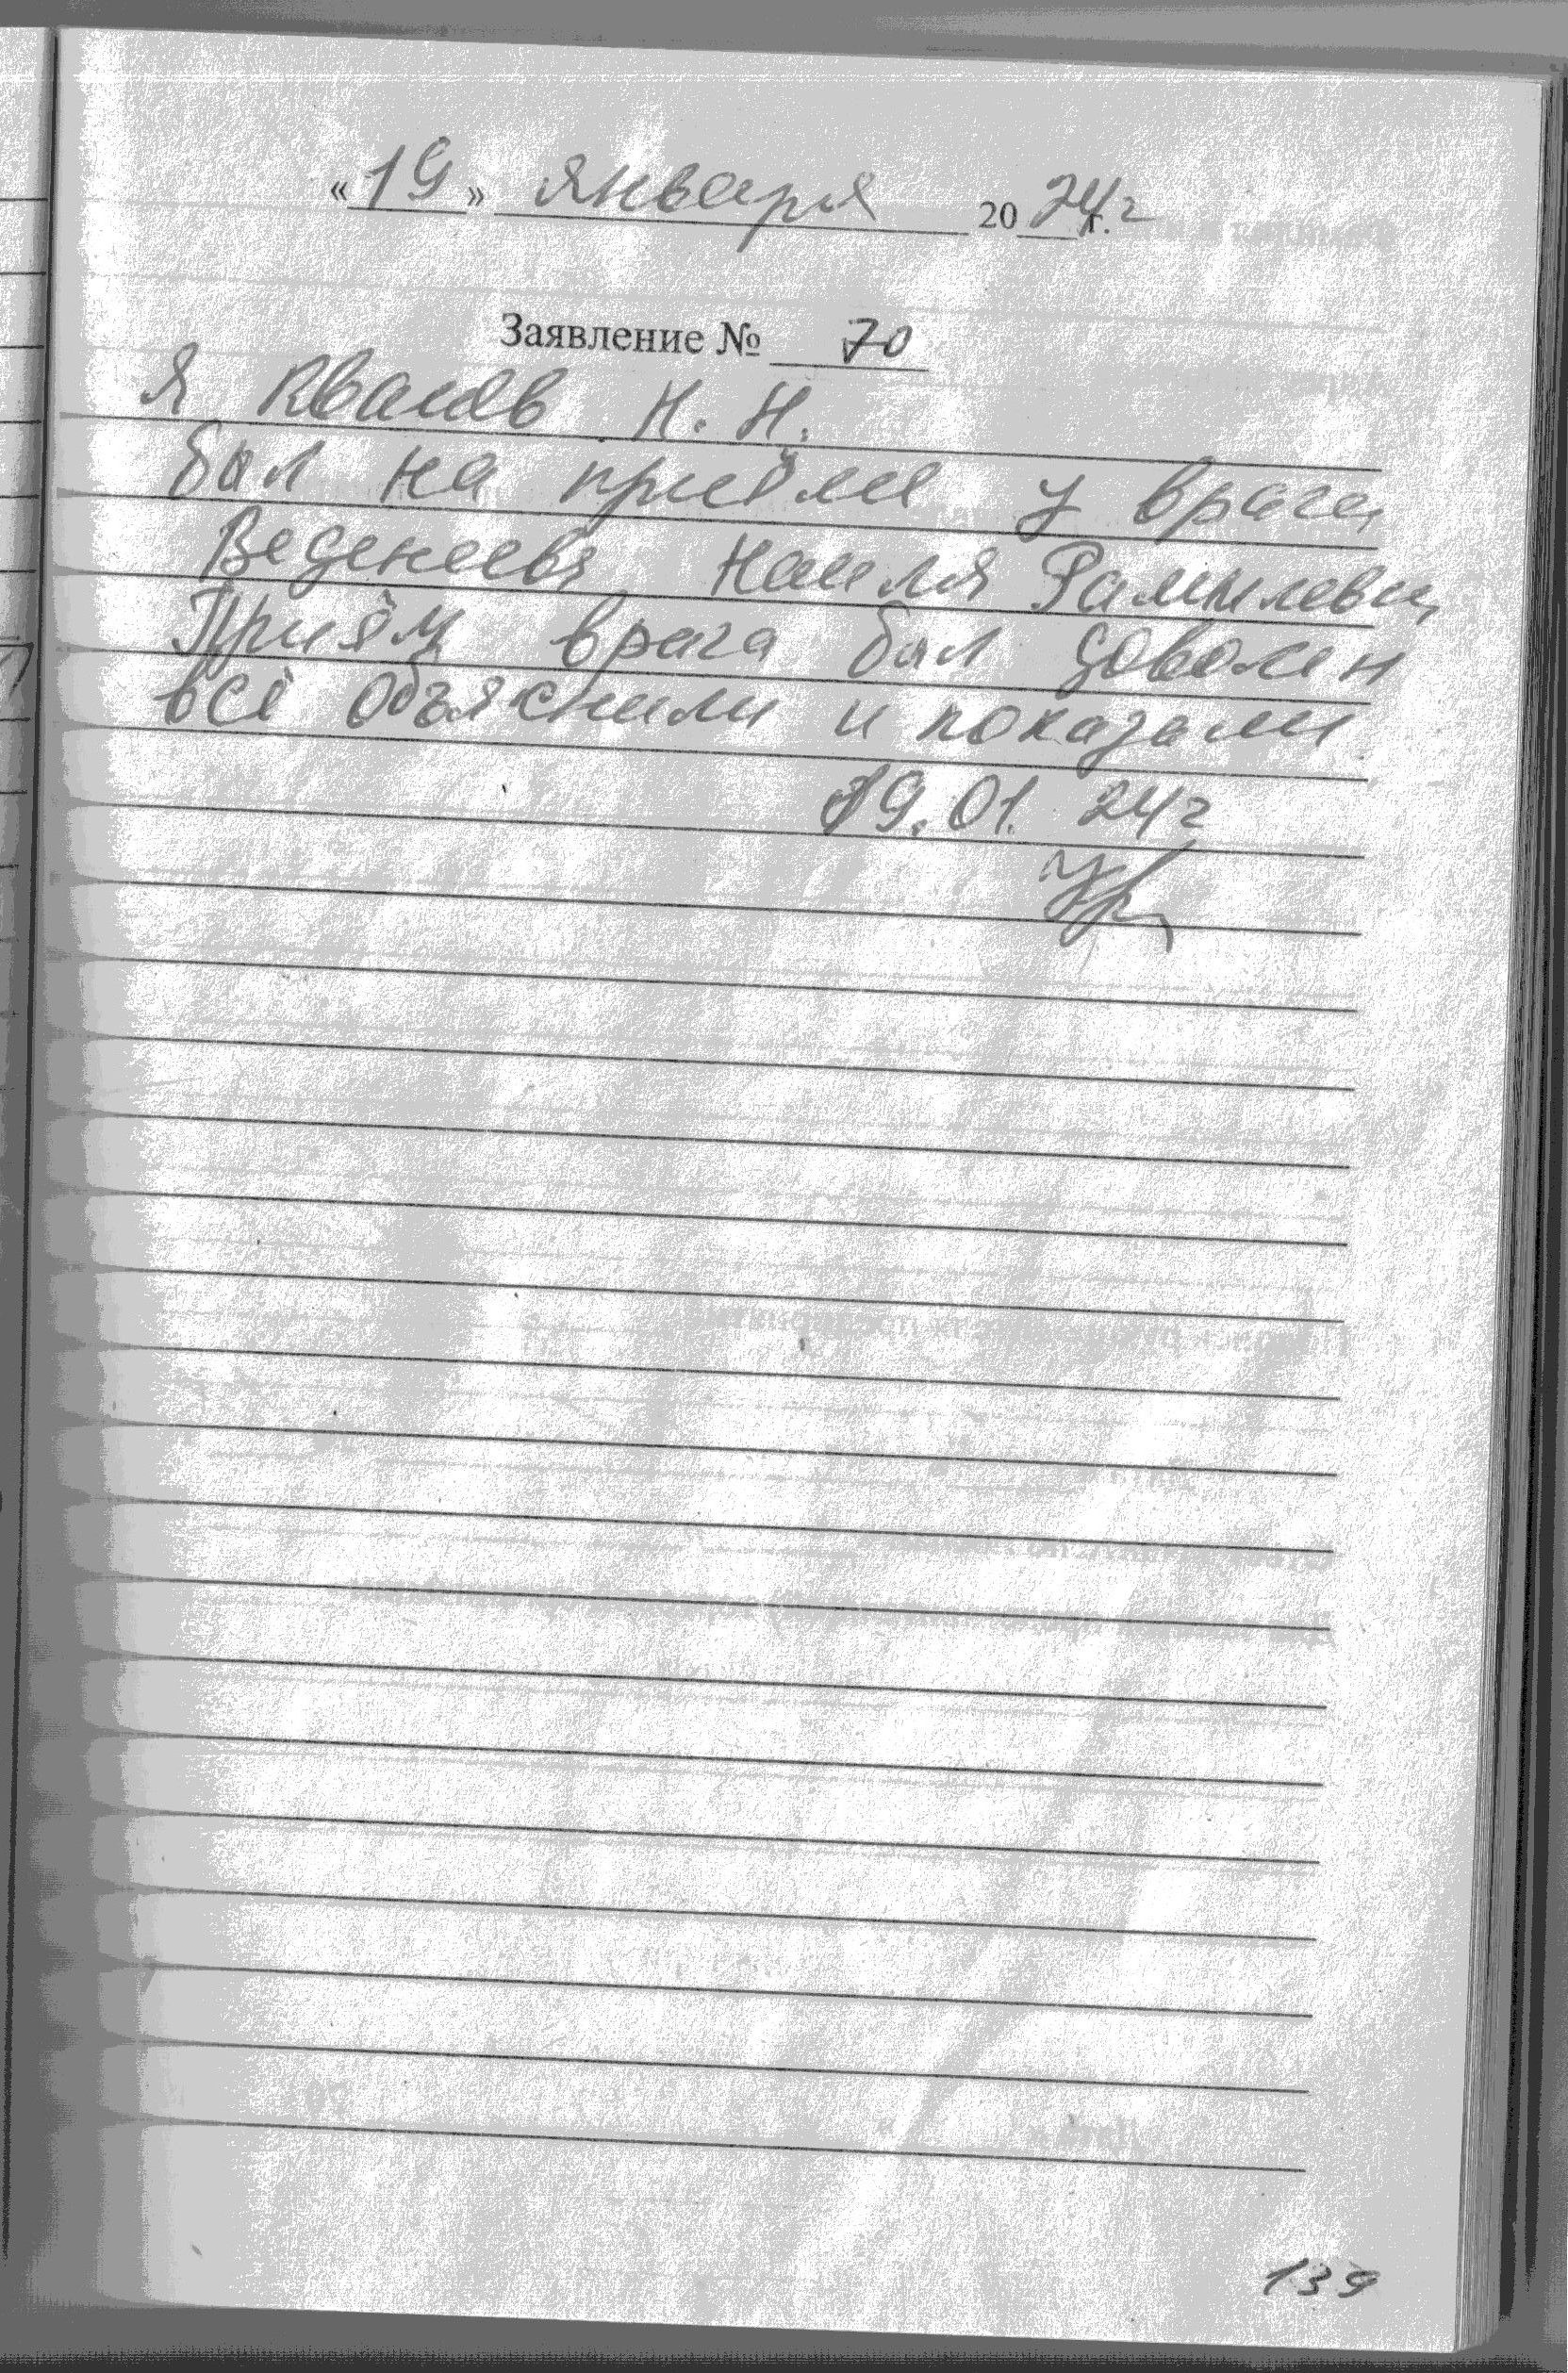 «19» января 2024г г.
Заявление № 70
Я Квасов Н. Н.
был на приёме у врача
Веденеева Наиля Рамилевич
Приём врача был доволен
всё объяснили и показали
19.01. 24г
139